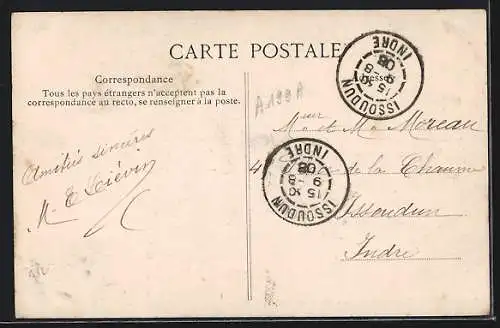 CARTE POSTALE
Correspondance
Tous les pays étrangers n'acceptent pas la
correspondance au recto, se renseigner à la poste.
Adresse
ISSOUDUN
15 10
9 - 8
08
INDRE
A199A
Amitiés sincères
M E Liévin
M et Me Moreau
4 de la Chaume
Issoudun
Indre
ISSOUDUN
15 10
9 - 8
08
INDRE